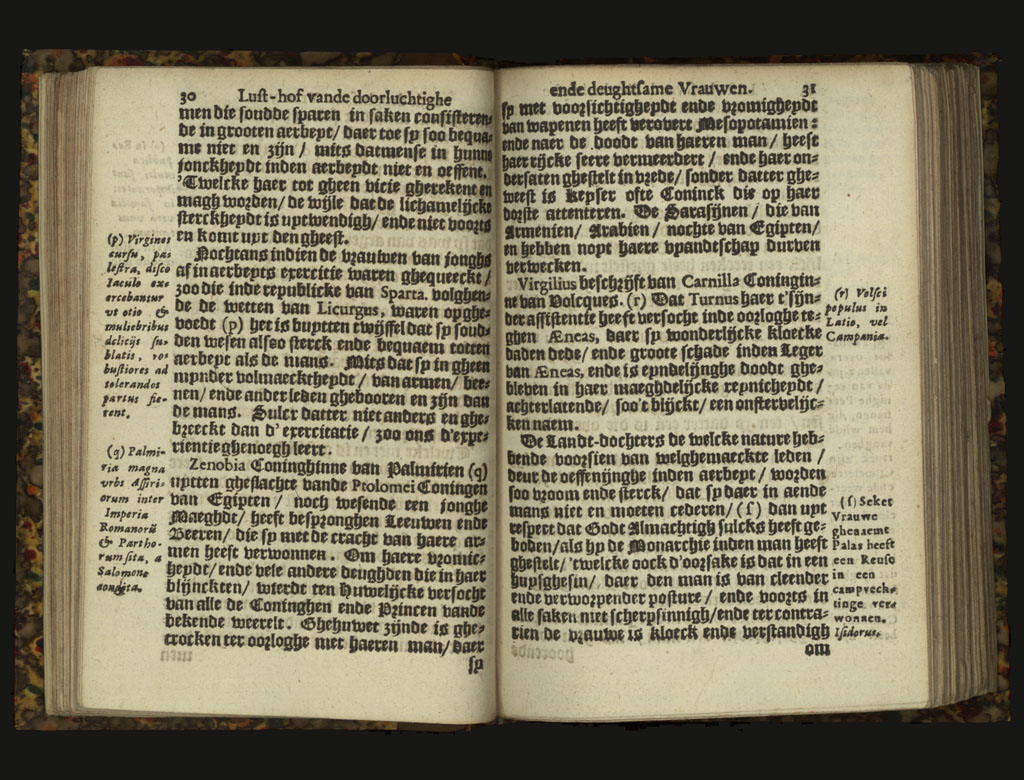 30 Lust-hof vande doorluchtighe
men die soudde sparen in saken consisteren-
de in grooten aerbeyt/ daer toe sy soo bequa-
me niet en zijn/ mits datmense in hunne
jonckheydt inden aerbeydt niet en oeffent.
'Twelcke haer tot gheen vicie gherekent en
magh worden/ de wijle dat de lichamelijcke
sterckheydt is uytwendigh/ ende niet voorts
en komt uyt den gheest.
Nochtans indien de vrauwen van jonghs
af in aerbeyts exercitie waren ghequeeckt/
zoo die inde republicke van Sparta, volghen-
de de wetten van Licurgus, waren op ghe-
voedt (p) het is buytten twijffel dat sy soud-
den wesen alseo sterck ende bequaem totten
aerbeyt als de mans. Mits dat sy in gheen
mynder volmaecktheydt/ van armen/ bee-
nen/ ende ander leden ghebooren en zijn dan
de mans. Sulcx datter niet anders en ghe-
breeckt dan d'exercitatie/ zoo ons d'expe-
rientie ghenoegh leert.
Zenobia Coninghinne van Palmirien (q)
uytten gheslachte vande Ptolomei Coningen
van Egipten/ noch wesende een jonghe
Maeghdt/ heeft bespronghen Leeuwen ende
Beeren/ die sy met de cracht van haere ar-
men heeft verwonnen. Om haere vromic-
heydt/ ende vele andere deughden die in haer
blijnckten/ wierdt ten Huwelijcke versocht
van alle de Coninghen ende Princen vande
bekende weerelt. Ghehuwet zijnde is ghe-
trocken ter oorloghe met haeren man/ daer
sy
(p) Virgines
cursu, pa-
lestra, disco
Iaculo exe
ercebantur
ut otio &
muliebribus
delicijs su-
blatis, ro-
bustiores ad
tolerandos
partus fie-
rent.
(q) Palmi-
ria magna
urbs Assiri-
orum inter
Imperia
Romanorũ
& Partho-
rum sita, a
Salomone
condita.
ende deughtsame Vrauwen. 31
sy met voorsichtigheydt ende vromigheydt
van wapenen heeft verovert Mesopotamien:
ende naer de doodt van haeren man/ heeft
haer rijcke seere vermeerdert/ ende haer on-
dersaten ghestelt in vrede/ sonder datter ghe-
weest is Keyser ofte Coninck die op haer
dorste attenteren. De Sarasijnen/ die van
Armenien/ Arabien/ nochte van Egipten/
en hebben noyt haere vyandtschap durven
verwecken.
Virgilius beschrijft van Camilla Coningin-
ne van Volcques. (r) Dat Turnus haer t'sijn-
der assistentie heeft versocht inde oorloghe te-
ghen Æneas, daer sy wonderlijcke kloecke
daden dede/ ende groote schade inden Leger
van Æneas, ende is eyndelijnghe doodt ghe-
bleven in haer maeghdelijcke reynicheydt/
achterlatende/ soo't blijckt/ een onstervelijc-
ken naem.
De Landt-dochters de welcke nature heb-
bende voorsien van welghemaeckte leden/
deur de oeffenijnghe inden aerbeyt/ worden
soo vroom ende sterck/ dat sy daer in aende
mans niet en moeten cederen/ (s) dan uyt
respect dat Godt Almachtigh sulcks heeft ge-
boden/ als hy de Monarchie inden man heeft
ghestelt/ 'twelcke oock d'oorsake is dat in een
huysghesin/ daer den man is van cleender
ende verworpender posture/ ende voorts in
alle saken niet scherpsinnigh/ ende ter contra-
rien de vrauwe is kloeck ende verstandigh
om
(r) Volsci
populus in
Latio, vel
Campania.
(s) Seker
Vrauwe
ghenaemt
Palas heeft
een Reuso
in een
campvech-
tinge ver-
wonnen.
Isidorus.